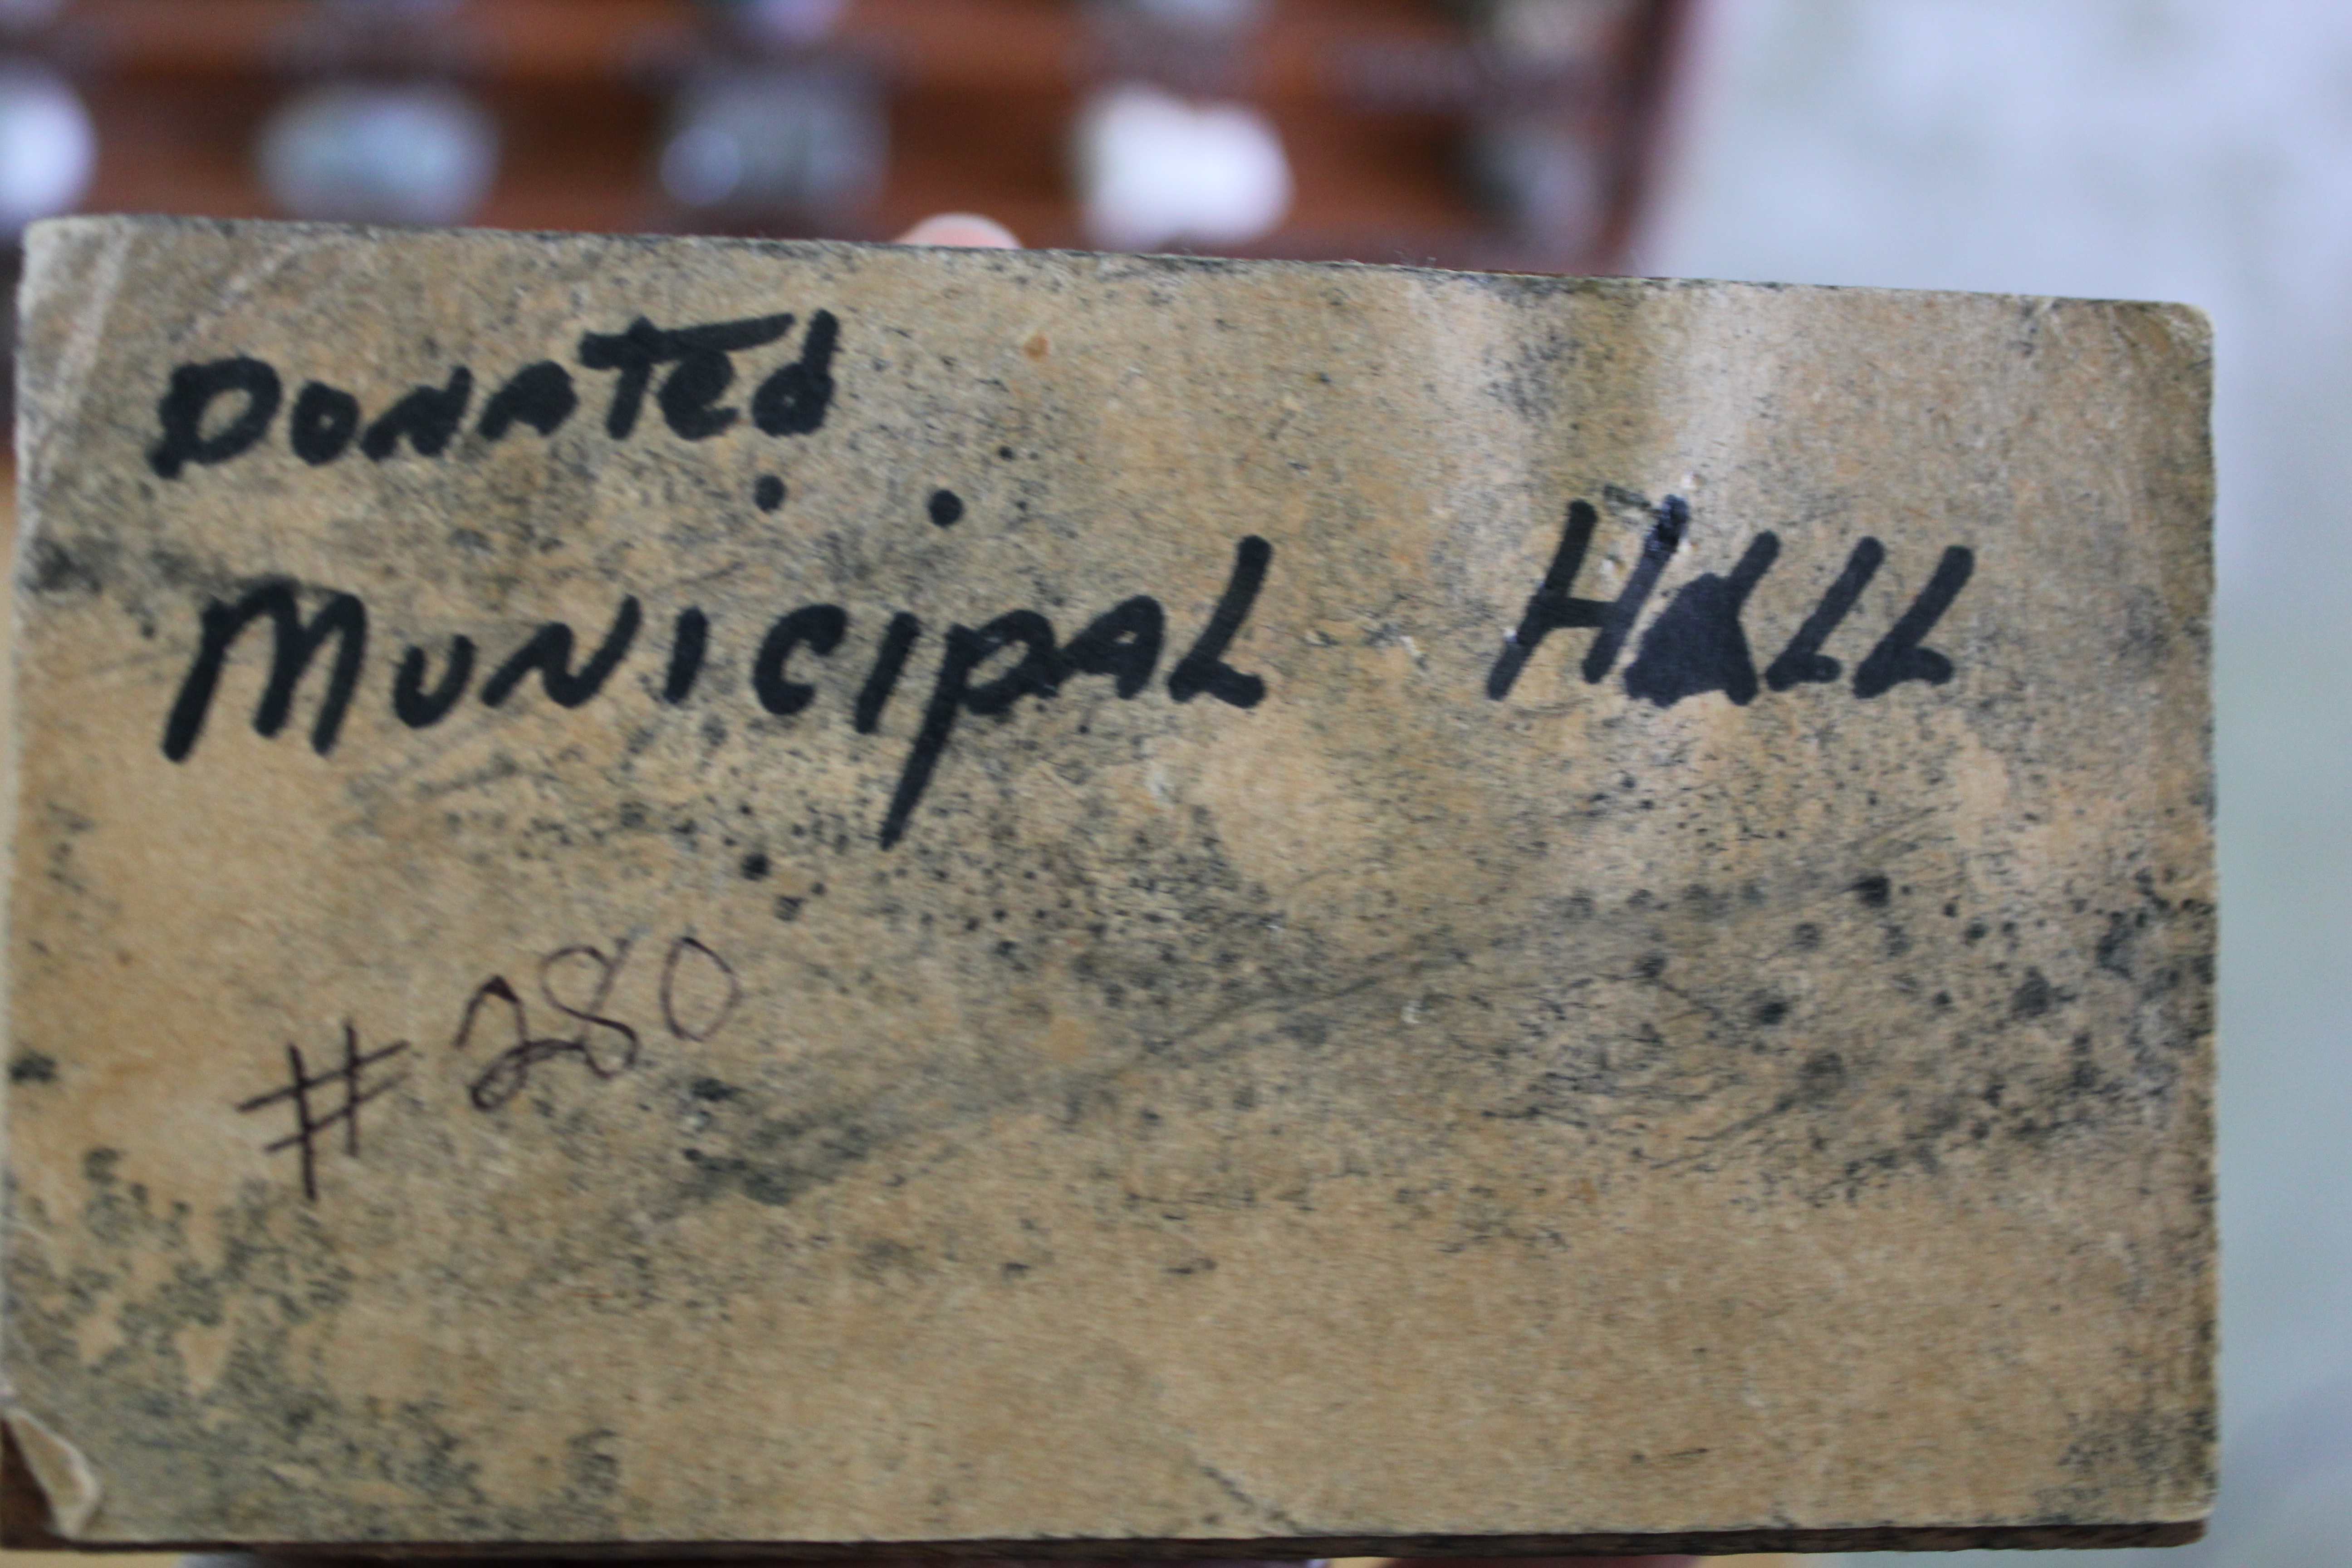 DONATed
MUNICIPAL HALL
# 280